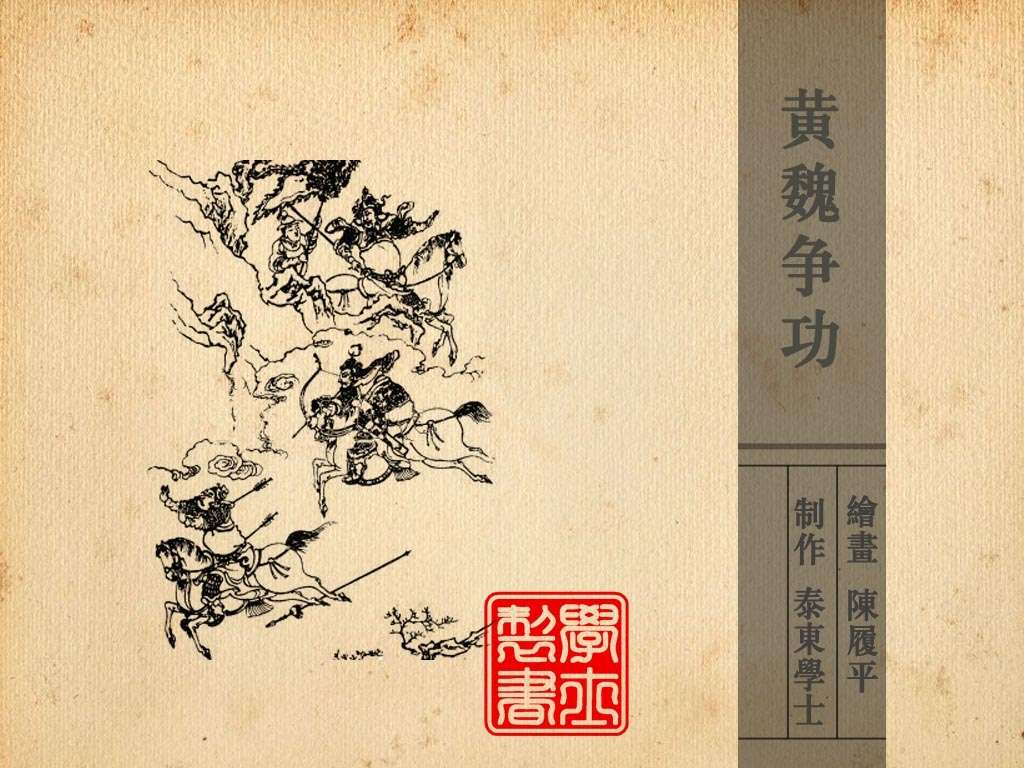 黄魏争功
繪畫 陳履平
制作 泰東學士
學士
製書